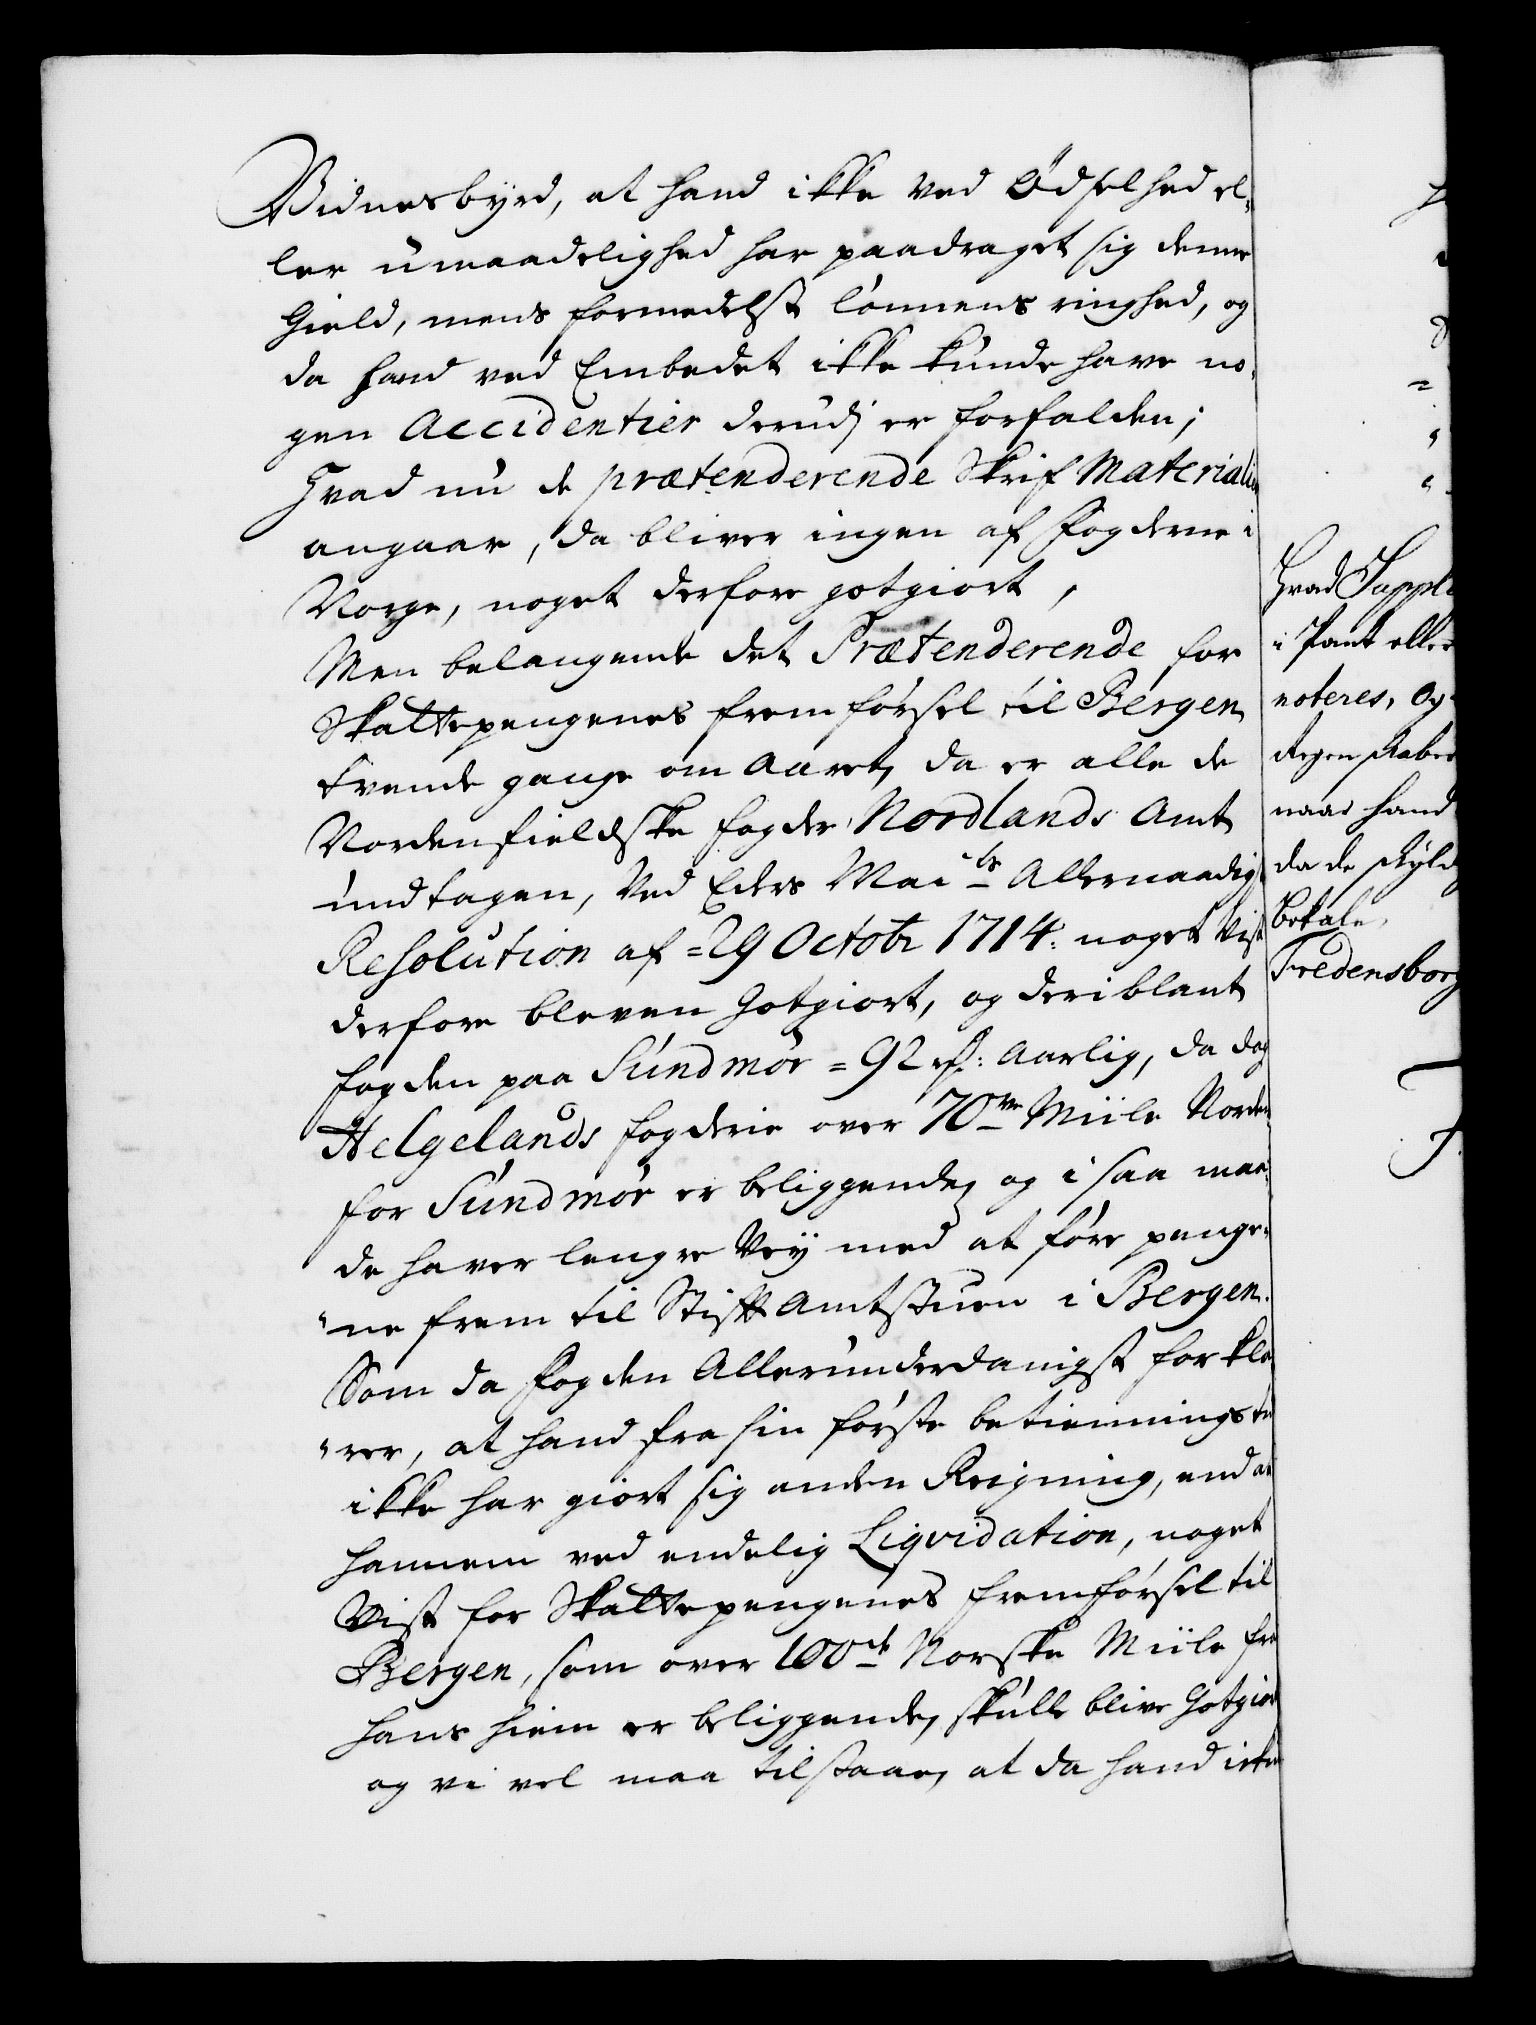 Vidnesbyrd, at hand ikke ved Ödselhed el,
ler umaadelighed har paadraget sig denne
Gield, mens formedelst lönnens ringhed, og
da hand ved Embedet ikke kunde have no,
gen Accidentier derudj er forfalden;
Hvad nu de prætenderende Skrif Materialier
angaar, da bliver ingen af Fogderne i
Norge, noget derfore gotgiort,
Men belangende det Prætenderende for
Skattepengenes fremförsel til Bergen
tvende gange om Aaret, da er alle de
Nordenfieldske Fogder, Nordlands Amt
undtagen, ved Eders Maits Allernaadigste
Resolution af =29 Octobr 1714: noget vist
derfore bleven Gotgiort, og deriblant
Fogden paa Sundmör = 92 rd: Aarlig, da dog
Helgelands Fogderie over 70ve Miile Norden
for Sundmör er beliggende, og i saa maa,
de haver lengre Vey med at före penge,
"ne frem til Stift Amtstuen i Bergen.
Som da Fogden Allerunderdanigst forkla
"rer, at hand fra sin förste betiennings tid
ikke har giort sig anden Reigning, end at
hannem ved endelig Liqvidation, noget
Vist for Skattepengenes fremförsel til
Bergen, som over 100de Norske Miile fra
hans hiem er beliggende, skulle blive Gotgiort
og vi vel maa tilstaae, at da hand ikke
Hvad Supple
i Pant eller
noteres, og
Regenskaber
naar hand
da de skyld
betale,
Fredensborg